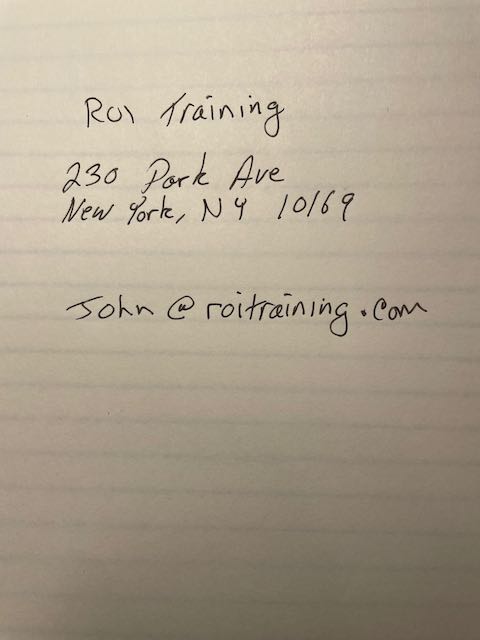 Roi Training
230 Park Ave
New York, NY 10169
John@roitraining.com